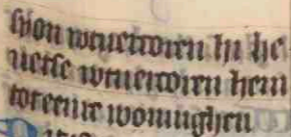 syon wtuercoren hi he
uetse wtuercoren hem
tot eenre woninghen